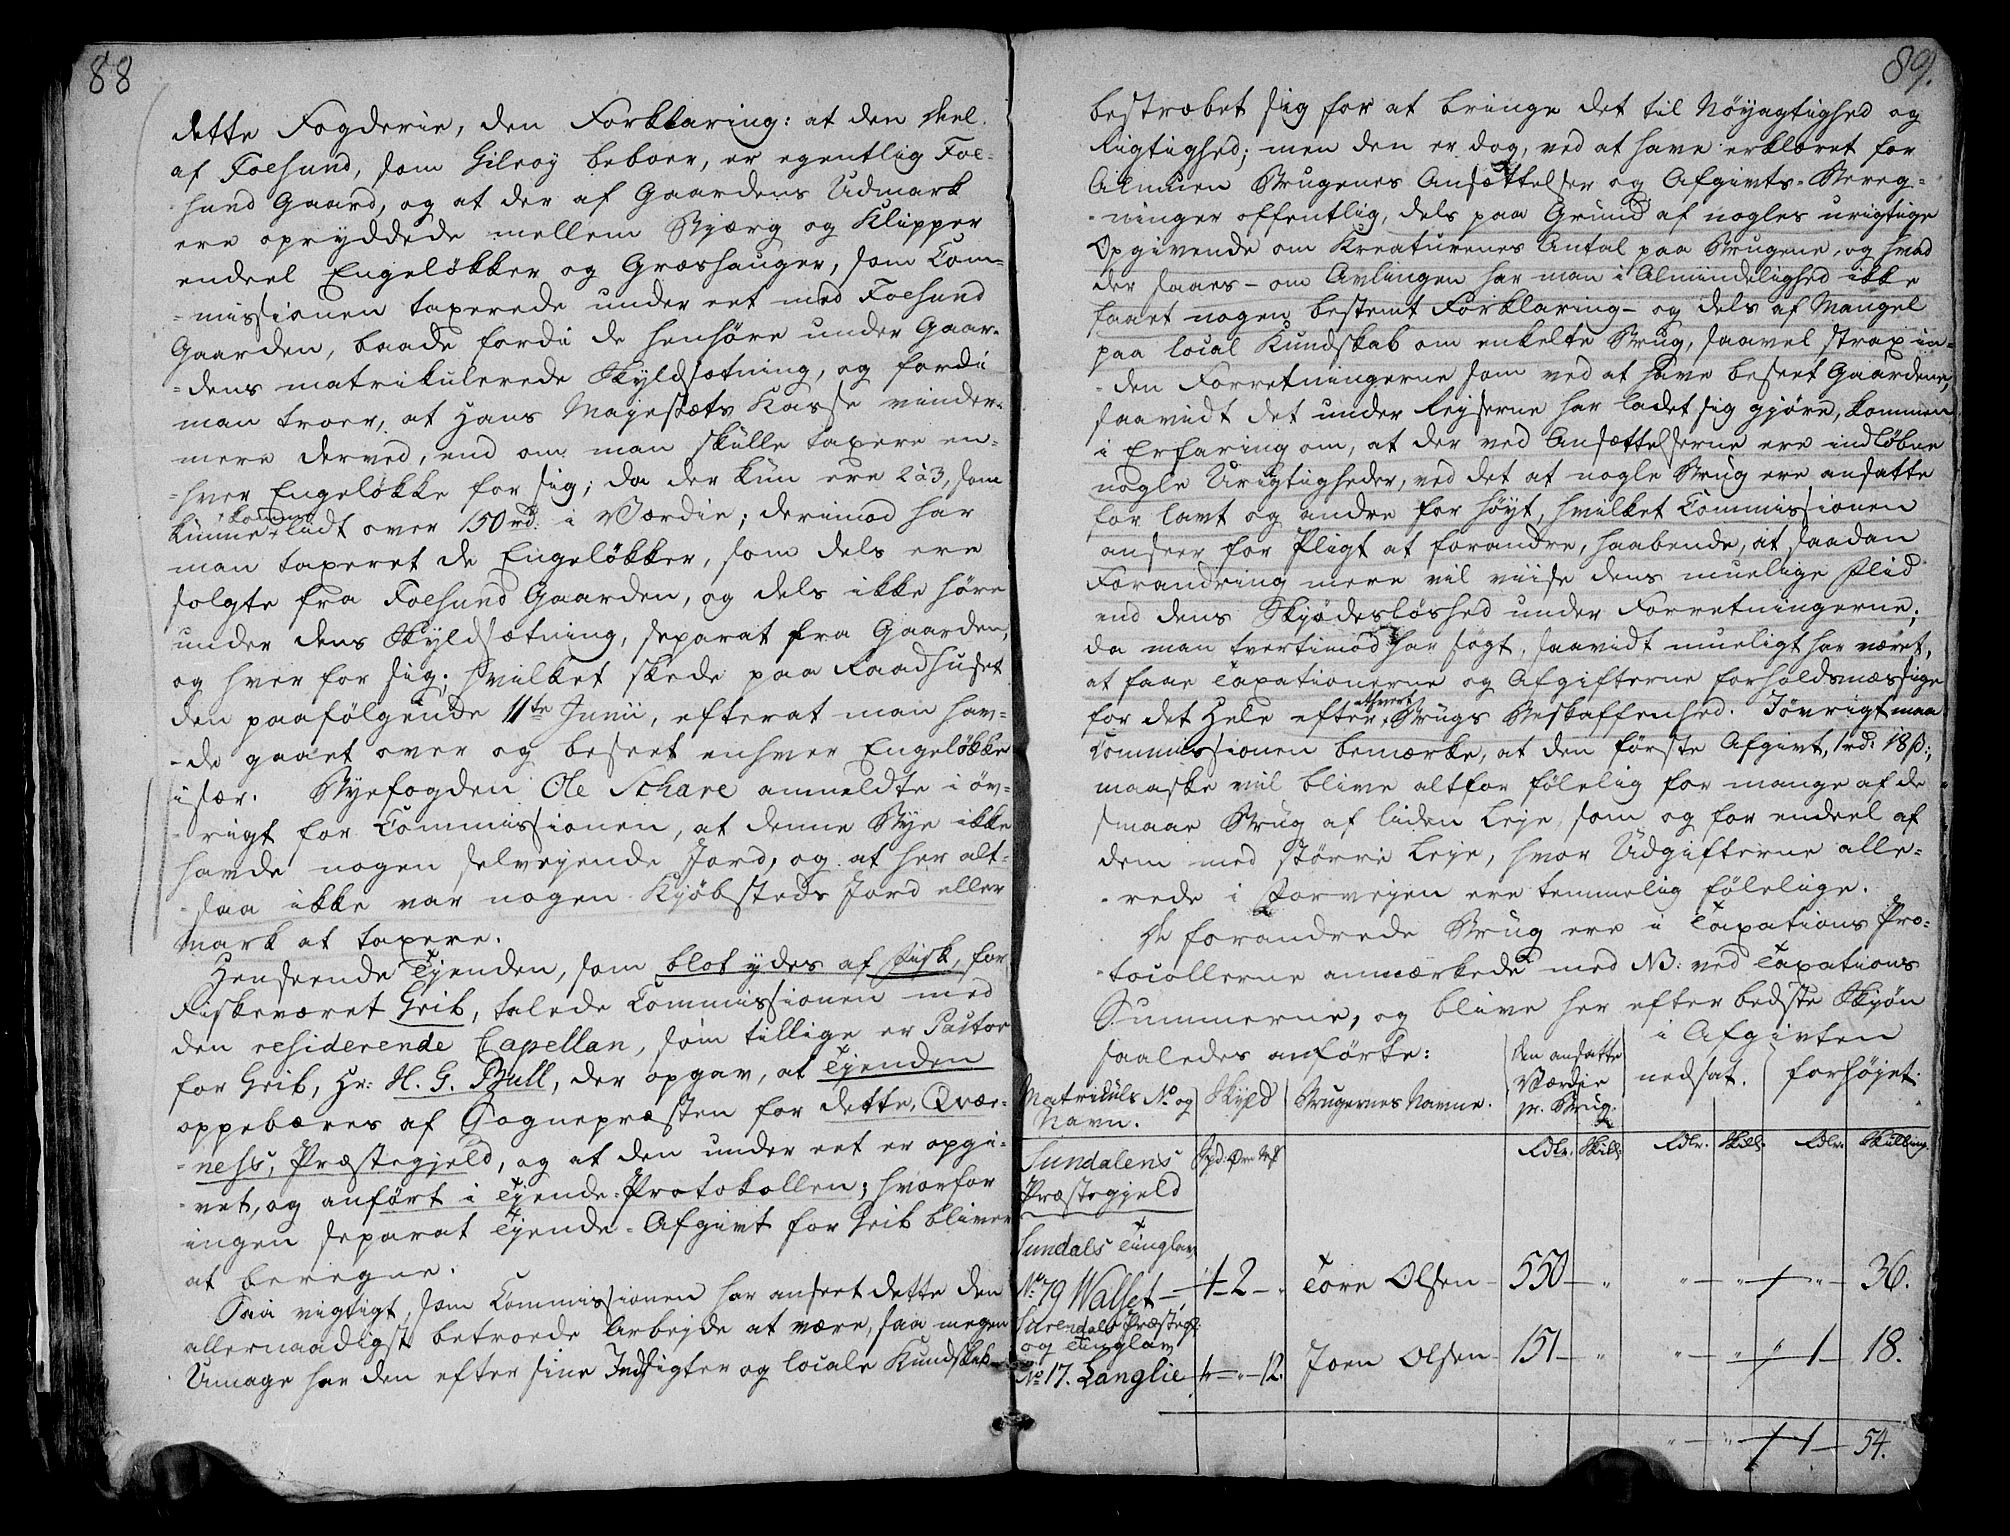 88
dette Fogderie, den Forklaring: at den Deel
af Foesund, som Gilroy beboer, er egentlig Foe-
sund Gaard, og at der af Gaardens Udmark
ere opryddede mellem Bjærg og Klipper
endeel Engeløkker og Græshauger, som Com-
missionen taxerede under eet med Foesund
Gaarden, baade fordi de henhøre under Gaar-
dens matrikulerede Skyldsætning, og fordi
man troer, at Hans Majestæts Kasse vinder
mere derved, end om man skulle taxere en-
hver Engeløkke for sig; da der kun ere 2 à 3, som
kunne komme lidt over 150 rd. i Værdie; derimod har
man taxeret de Engeløkker, som dels ere
solgte fra Foesund Gaarden, og dels ikke høre
under dens Skyldsætning, separat fra Gaarden,
og hver for sig; hvilket skede paa Raadhuset
den paafølgende 11te Junii, efterat man hav-
de gaaet over og beseet enhver Engeløkke
især. Byefogden Ole Schare anmeldte i øv-
rigt for Commissionen, at denne Bye ikke
havde nogen selvejende Jord, og at her alt-
saa ikke var nogen Kjøbsteds Jord eller
mark at taxere.
Henseende Tjenden, som blot ydes af Fisk, for
Fiskeværet Grib, talede Commissionen med
den residerende Capellan, som tillige er Pastor
for Grib, Hr: H. G. Bull, der opgav, at Tjenden
oppebæres af Sognepræsten for dette, Qvær-
ness, Præstegjeld, og at den under eet er opgi-
vet, og anført i Tjende-Protokollen; hvorfor
ingen separat Tjende-Afgivt for Grib bliver
at beregne.
Saa vigtigt, som Commissionen har anseet dette den
allernaadigst betroede Arbejde at være, saa megen
Umage har den efter sine Indsigter og locale Kundskab
89.
bestræbet sig for at bringe det til Nøyagtighed og
Rigtighed; men den er dog, ved at have erklæret for
Almuen Brugenes Ansættelser og Afgivts-Bereg-
ninger offentlig, dels paa Grund af nogles urigtige
Opgivende om Kreaturenes Antal paa Brugene, og hvad
der saaes - om Avlingen har man i Almindelighed ikke
faaet nogen bestemt Forklaring - og dels af Mangel
paa local Kundskab om enkelte Brug, saavel strax in-
den Forretningerne som ved at have beseet Gaardene,
saavidt det under Rejserne har ladet sig gjøre, kommen
i Erfaring om, at der ved Ansættelserne ere indløbne
nogle Urigtigheder, ved det at nogle Brug ere ansatte
for lavt og andre for høyt, hvilket Commissionen
anseer for Pligt at forandre, haabende, at saadan
Forandring mere vil viise dens muelige Flid
end dens Skjødesløshed under Forretningerne;
da man tvertimod har søgt, saavidt mueligt har været,
at faae Taxationerne og Afgifterne forholdsmæssige
for det Hele efter ethvert Brugs Beskaffenhed. Iøvrigt maa
Commissionen bemærke, at den første Afgivt, 1 rd: 18 ß:,
maaske vil blive altfor følelig for mange af de
smaae Brug af liden Leje, som og for endeel af
dem med større Leje, hvor Udgifterne alle-
rede i Forvejen ere temmelig følelige.
De forandrede Brug ere i Taxations Pro-
tocollerne anmærkede med NB: ved Taxations
Summerne, og blive her efter bedste Skjøn
saaledes anførte:
Matriculs No og Navn. Skyld Brugernes Navne. Den ansatte Værdie pr. Brug. i Afgivten nedsat. forhøjet.
Rdlr. Skill. Rdlr. Skill. Rdlr. Skilling.
Sundalens Præstegjeld
Sundals Tinglav
No 79 Walset - 1 - 2 - „ Tore Olsen - 550 - „ „ - „ - „ - 36.
Surendals Præstegl. og Tinglav
No 17. Langlie - „ - 12. Joen Olsen - 151 - „ „ - „ 1 - 18.
„ - „ 1 - 54.